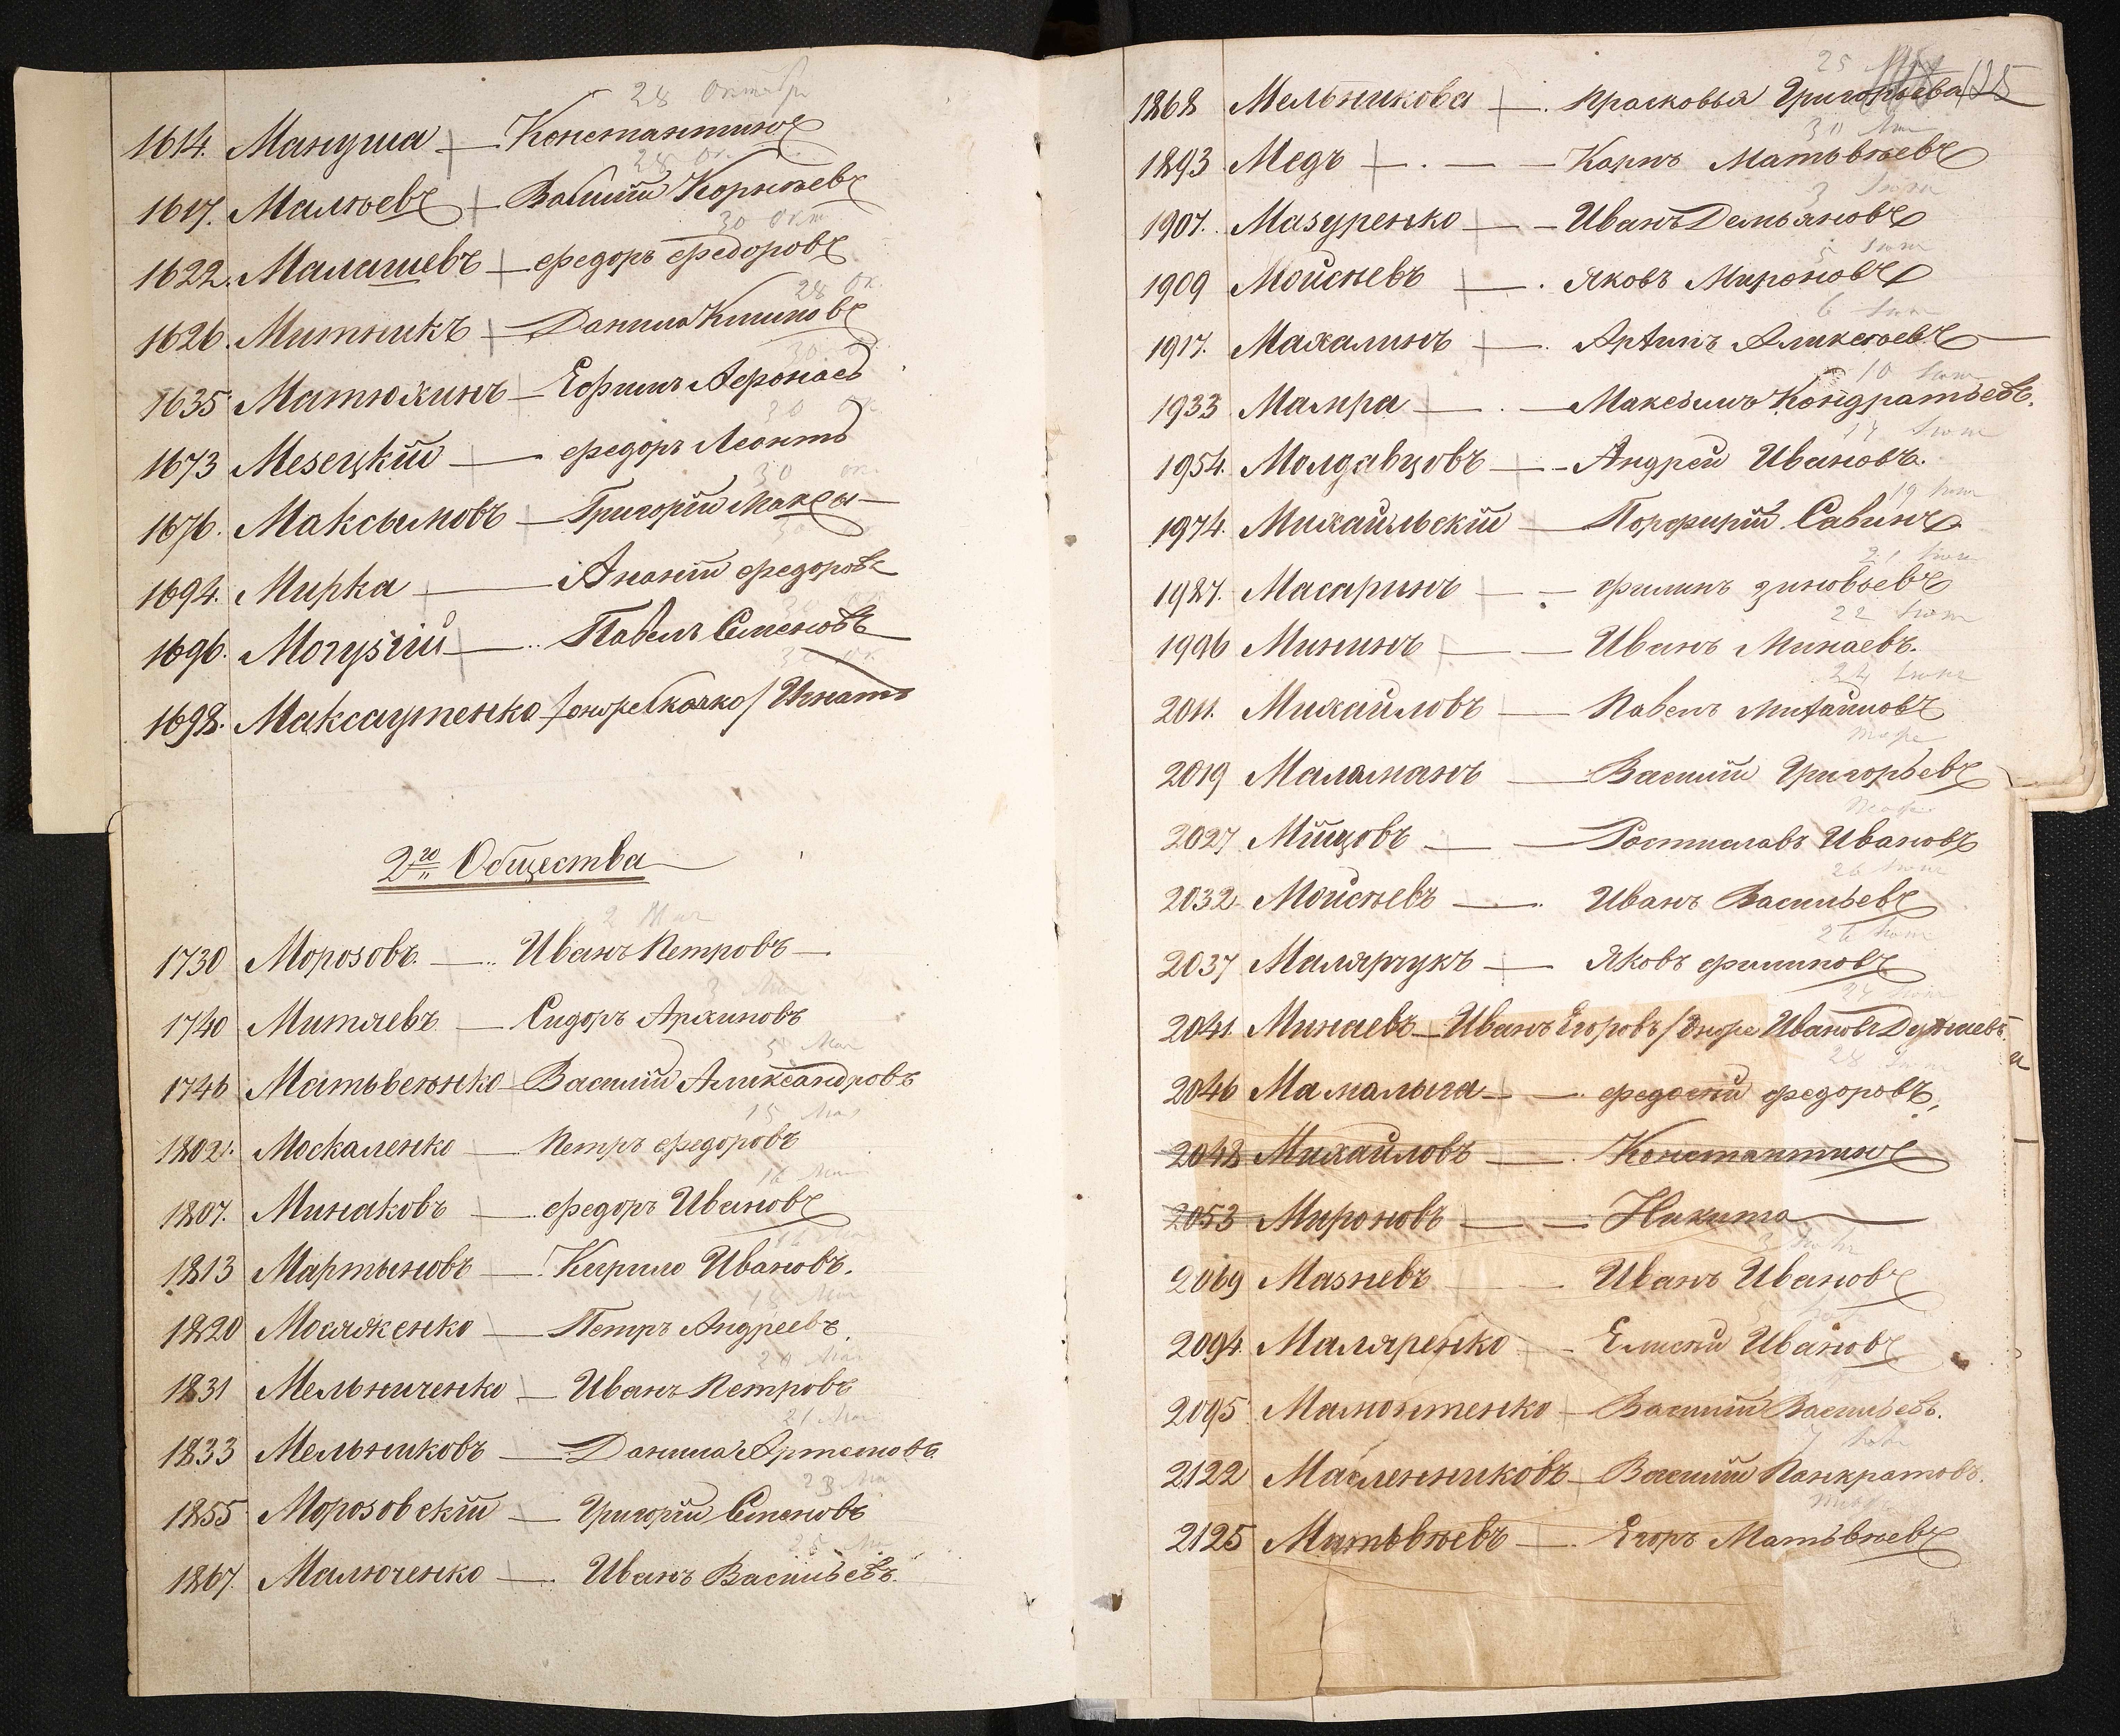 28 Октября
1614. Мануша — Константинъ
28 Ок.
1617. Малѣевъ — Василій Корнѣевъ
30 Окт
1622. Малашевъ — Федоръ Федоровъ
28 Ок.
1626. Митникъ — Данило Климовъ
30 Ок.
1635 Матюхинъ — Ефимъ Афонасъ
30 Ок
1673 Мезецкій — Федоръ Леонтъ
30 ок.
1676. Максымовъ — Григорій Максы—
30
1694. Мирка — Ананій Федоровъ
30 ок
1696. Могучій — Павелъ Семеновъ
30 ок.
1698. Максаутенко / / Игнатъ
2го Общества
2 Мая
1730 Морозовъ — Иванъ Петровъ —
3 Мая
1740 Митяевъ — Сидоръ Архиповъ
5 Мая
1746 Матьвеенко — Василій Александровъ
15 Мая
1802. Москаленко — Петръ Федоровъ
16 Мая
1807. Минаковъ — Федоръ Ивановъ
1813 Мартыновъ — Кирило Ивановъ.
18 Мая
1820 Мосяженко — Петръ Андреевъ.
20 Мая
1831 Мельниченко — Иванъ Петровъ
21 Мая
1833 Мельниковъ — Данила Артемовъ
23 Ма
1855 Морозовскій — Григорій Семеновъ
25 Ма
1867. Малюченко — Иванъ Васильевъ.
25 Мая 125
1868 Мельникова — Прасковья Григорьева
30 Мая
1893 Медъ — Карпъ Матьвѣевъ
3 Іюня
1907. Мазуренко — Иванъ Демьяновъ
5 Іюня
1909 Мойсѣевъ — Яковъ Мироновъ
6 Іюня
1917. Махалинъ — Архипъ Алексѣевъ
10 Іюня
1933 Мамра — Максимъ Кондратьевъ.
14 Іюня
1954. Молдавцовъ — Андрей Ивановъ.
19 Іюня
1974. Михайльскій — Порфирій Савинъ
21 Іюня
1987. Масаринъ — Филипъ Зиновьевъ
22 Іюня
1996 Мининъ — Иванъ Минаевъ.
24 Іюня
2011. Михайловъ — Павелъ Михайловъ
тоже
2019 Маламанъ — Василій Григорьевъ
тоже
2027 Мійцовъ — Ростиславъ Ивановъ
26 Іюня
2032. Мойсѣевъ — Иванъ Васильевъ
26 Іюня
2037 Малярчукъ — Яковъ Филиповъ
27 Іюня
2041. Минаевъ — Иванъ Егоровъ / Онъ же Ивановъ
28 Іюня
2046 Мамалыга — Федосѣй Федоровъ,
2048 Михайловъ — Константинъ
2053 Мироновъ — Никита
2069 Мазневъ — Иванъ Ивановъ
2094. Маляренко — Елисей Ивановъ
2095 — Василій Васильевъ.
2122 Масленниковъ — Василій Панкратовъ.
тоже
2125 Матьвѣевъ — Егоръ Матьвѣевъ